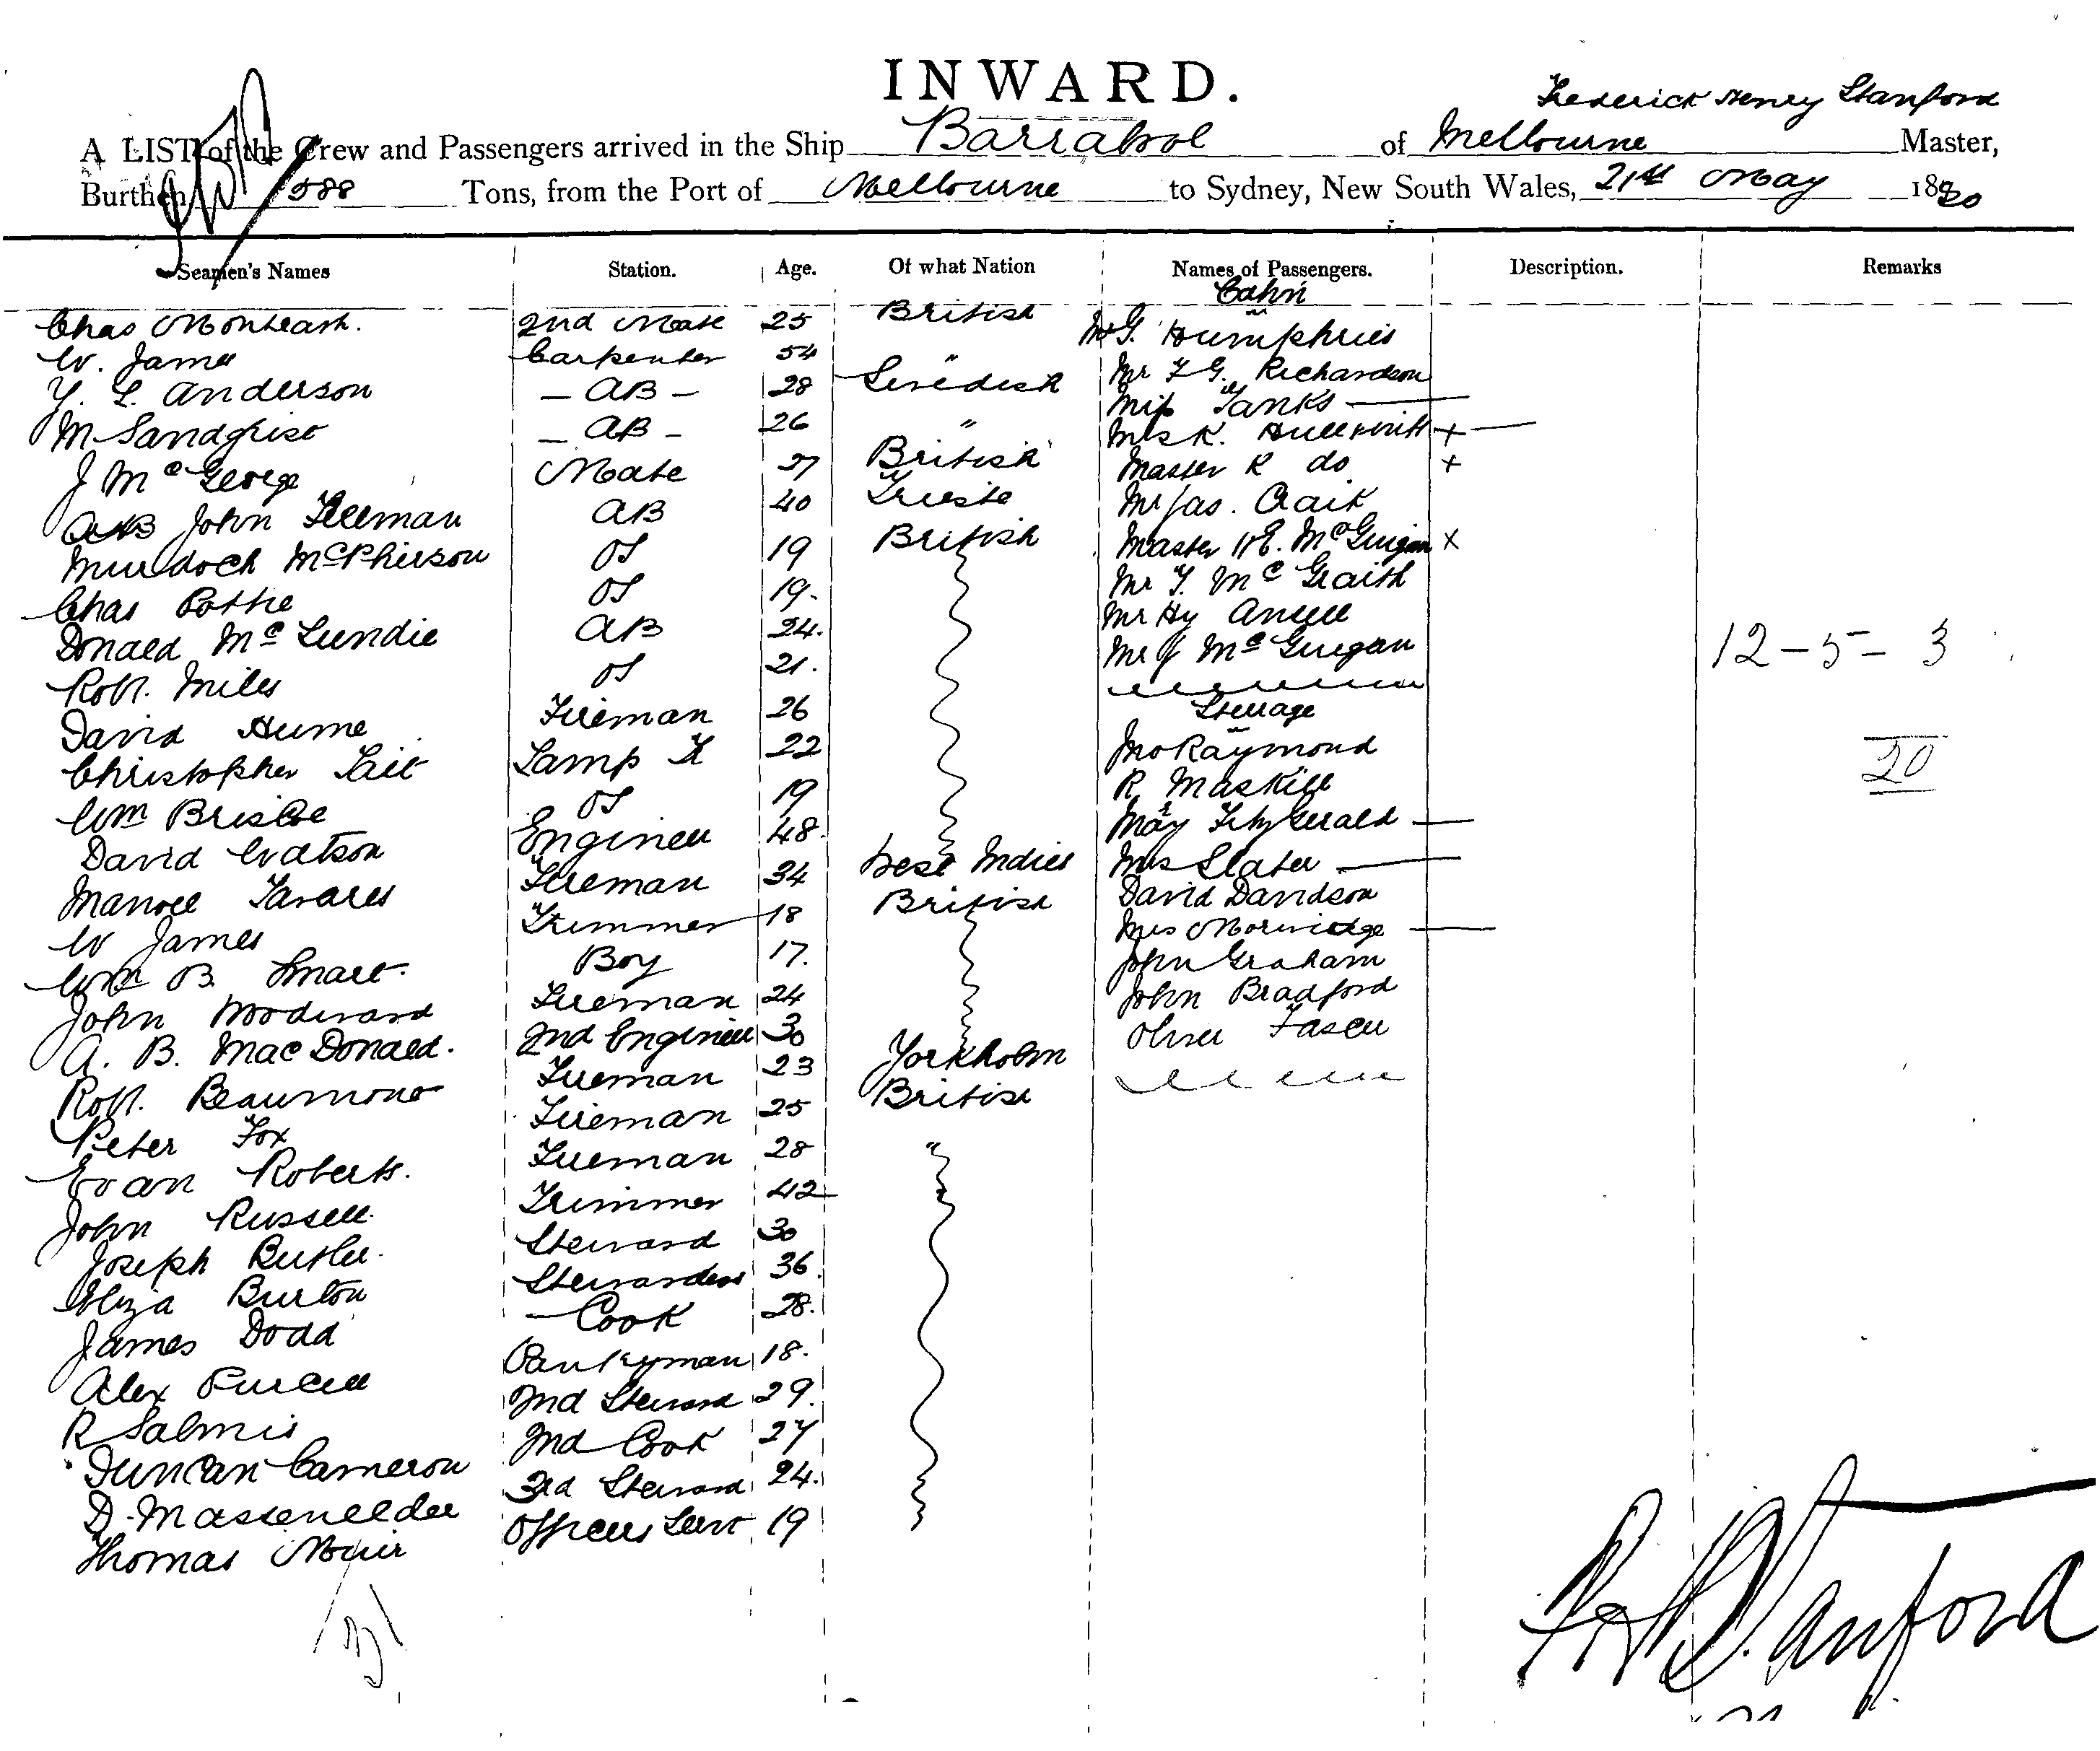 INWARD.
Frederick Henry Stanford
A LIST of the Crew and Passengers arrived in the Ship Barrabool of Melbourne Master,
Burthen 588 Tons, from the Port of Melbourne to Sydney, New South Wales, 21st May 1880
Seamen's Names Station. Age. Of what Nation Names of Passengers. Description. Remarks
Cabin
Chas Monteath. 2nd Mate 25 British Mr G. Humphries
W. James Carpenter 54 " Mr F G. Richardson
Y. L. Anderson — AB — 28 Swedish Miss Tanks —
M Sandqvist — AB — 26 " Mrs K. + —
J McGeorge Mate 27 British Master R do +
AB John Freeman AB 40 Trieste Mr Jas. Craik
Murdoch McPherson OS 19 British Master W E. McGuigan x
Chas Pottie OS 19. Mr T. McGraith
Donald McLundie AB 24. Mr Hy Ansell
Robt. Miles OS 21. Mr J McGuigan
12 - 5 - 3
David Hume Fireman 26 Steerage
Christopher Tait Lamp T 22 Jno Raymond
20
Wm Brisbe OS 19 R Maskill
David Watson Engineer 48. May FitzGerald —
Manoel Tavares Fireman 34 West Indies Mrs Slater —
W James Trimmer 18 British David Davidson
Wm B. Smart. Boy 17. Mrs —
John Woodward Fireman 24 John Graham
A. B. MacDonald. 2nd Engineer 30 John Bradford
Robt. Beaumont Fireman 23 Yorkholm Oliver
Peter Fox Fireman 25 British
Evan Roberts. Fireman 28 "
John Russell. Trimmer 42
Joseph Butler. Steward 30
Eliza Burton Stewardess 36.
James Dodd — Cook 28.
Alex Purcell 18.
R Salmis 2nd Steward 29.
Duncan Cameron 2nd Cook 27
D. 3rd Steward 24.
Thomas Muir Officers Servt 19
31
F H Stanford